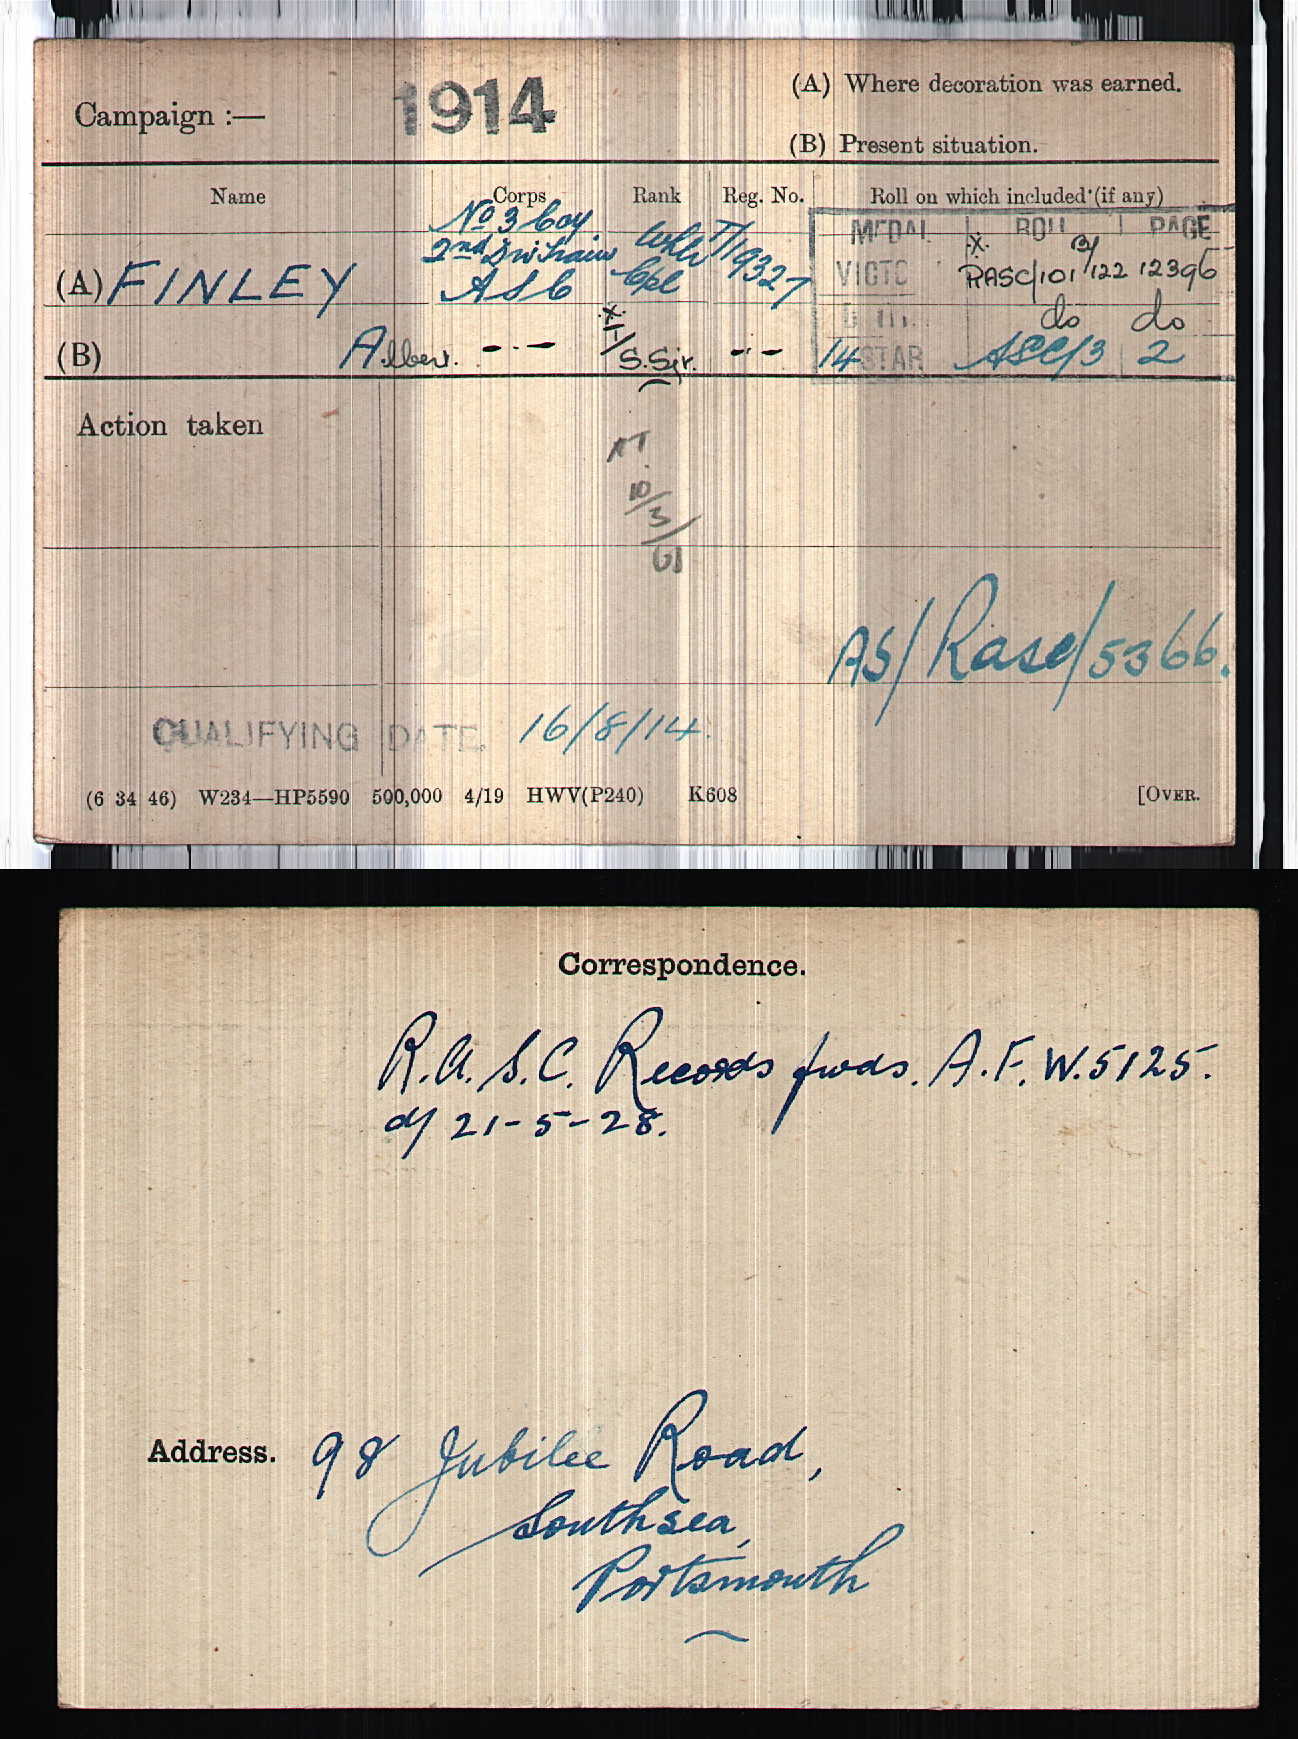 Campaign :— 1914
(A) Where decoration was earned.
(B) Present situation.
Name Corps Rank Reg. No. Roll on which included (if any)
No 3 Coy
2nd Div Train
(A) FINLEY ASC Whlr Cpl T/19327
MEDAL ROLL PAGE
VICTO X RASC/101 B/122 12396
do do
(B) Albert. -·- X S.Sjr. -·- 14 STAR ASC/3 2
Action taken
10/3/61
AS/Rasc/5366.
QUALIFYING DATE 16/8/14.
(6 34 46) W234—HP5590 500,000 4/19 HWV(P240) K608 [OVER.
Correspondence.
R.A.S.C. Records fwds. A.F.W.5125.
d/ 21-5-28.
Address. 98 Jubilee Road,
Southsea,
Portsmouth